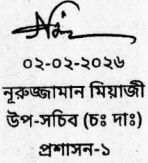 ০২-০২-২০২৬
নূরুজ্জামান মিয়াজী
উপ-সচিব (চঃ দাঃ)
প্রশাসন-১